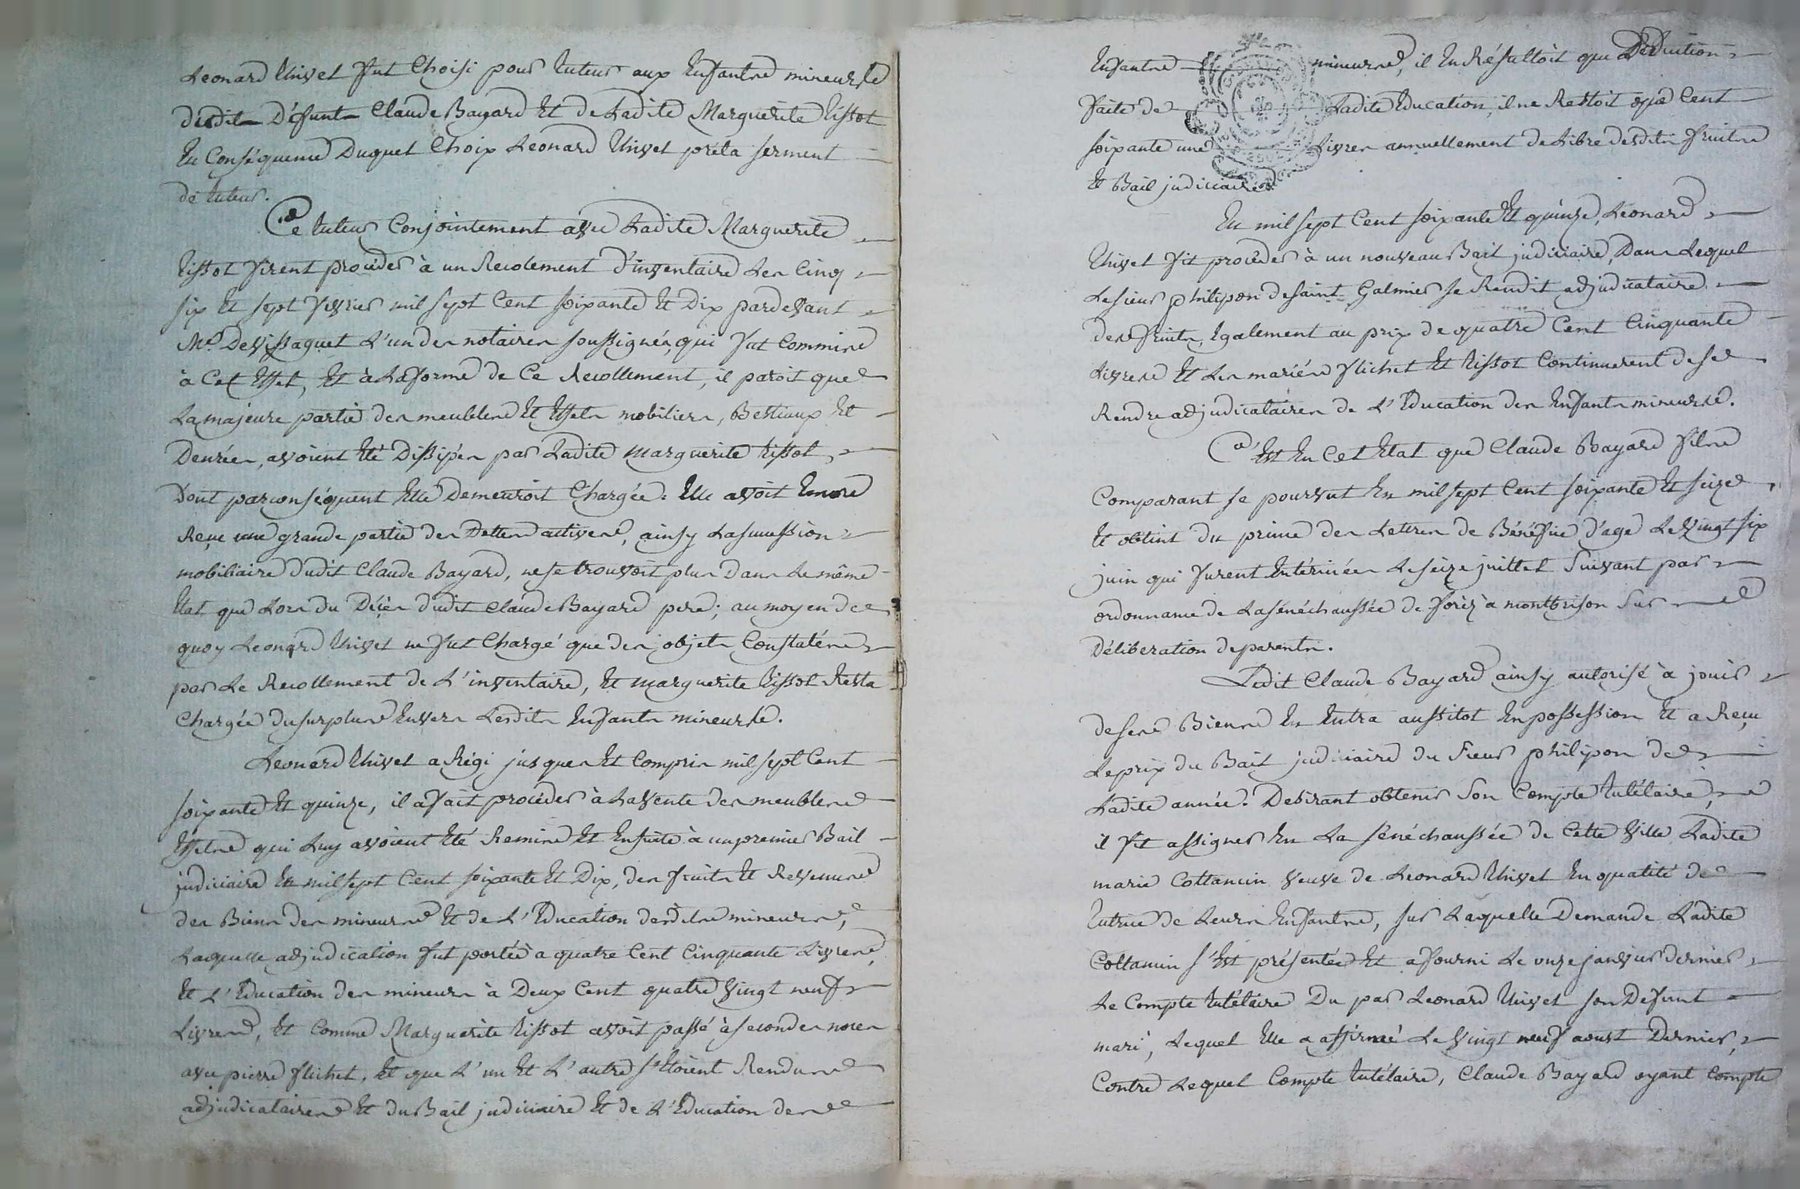 Leonard Thivet fut Choisi pour tuteur aux Enfants mineurs
dudit Défunt Claude Bayard Et de Ladite Marguerite Tissot
En Conséquence Duquel Choix Leonard Thivet prêta serment
de tuteur.
Ce tuteur Conjointement avec Ladite Marguerite
Tissot firent procéder à un Recolement d'inventaire Les Cinq
six Et sept fevrier mil sept Cent soixante Et Dix pardevant
Me. Devissaguet L'un des notaires soussignés, qui fut Commis
à Cet Effet, Et à La forme de Ce Recollement, il paroit que
La majeure partie des meubles Et Effets mobiliers, Bestiaux Et
Denrées, avoient Eté Dissipés par Ladite Marguerite Tissot,
Dont par conséquent Elle Demeuroit Chargée. Elle avoit Encore
Reçu une grande partie des Dettes actives, ainsy La succession
mobiliaire dudit Claude Bayard, ne se trouvoit plus Dans Le même
Etat que Lors du Décès dudit Claude Bayard pere; au moyen de
quoy Leonard Thivet ne fut Chargé que des objets Constatés
par Le Recollement de L'inventaire, Et Marguerite Tissot Resta
Chargée du surplus Envers Lesdits Enfants mineurs.
Leonard Thivet a Régi jusques Et Compris mil sept Cent
soixante Et quinze, il a fait procéder à La vente des meubles
Effets qui Luy avoient Eté Remis Et Ensuite à un premier Bail
judiciaire En mil sept Cent soixante Et Dix, des fruits Et Revenus
des Biens des mineurs Et de L'Education desdits mineurs,
Laquelle adjudication fut portée à quatre Cent Cinquante Livres,
Et L'Education des mineurs à Deux Cent quatre Vingt neuf
Livres, Et Comme Marguerite Tissot avoit passé à secondes noces
avec pierre flichet, Et que L'un Et L'autre s'Etoient Rendus
adjudicataires Et du Bail judiciaire Et de L'Education des
Enfants mineurs, il En Résultoit que Déduction
faite de Ladite Education, il ne Restoit que Cent
soixante une Livres annuellement de Libre desdits fruits
Et Bail judiciaire
En mil sept Cent soixante Et quinze, Leonard
Thivet fit procéder à un nouveau Bail judiciaire, Dans Lequel
Le sieur philipon de saint Galmier se Rendit adjudicataire
des fruits, Egalement au prix de quatre Cent Cinquante
Livres Et Les mariés flichet Et Tissot Continuerent de se
Rendre adjudicataires de L'Education des Enfants mineurs.
C'Est En Cet Etat que Claude Bayard fils
Comparant se pourvut En mil sept Cent soixante Et seize
Et obtint du prince des Lettres de Bénéfice d'age Le Vingt six
juin qui furent Entérinées Le seize juillet Suivant par
ordonnance de La sénéchaussée de forèz à montbrison Sur
Déliberation de parents.
Ledit Claude Bayard ainsy autorisé à jouir
de ses Biens En Entra aussitot En possession Et a Reçu
Le prix du Bail judiciaire du sieur philipon de
Ladite année. Desirant obtenir Son Compte tutélaire,
il fit assigner En La sénéchaussée de Cette Ville Ladite
marie Cottancin veuve de Leonard Thivet En qualité de
tutrice de Leurs Enfants, sur Laquelle Demande Ladite
Cottancin s'Est présentée Et a fourni Le onze janvier dernier
Le Compte tutélaire Du par Leonard Thivet son Defunt
mari, Lequel Elle a affirmé Le Vingt neuf aoust Dernier,
Contre Lequel Compte tutélaire, Claude Bayard oyant Compte